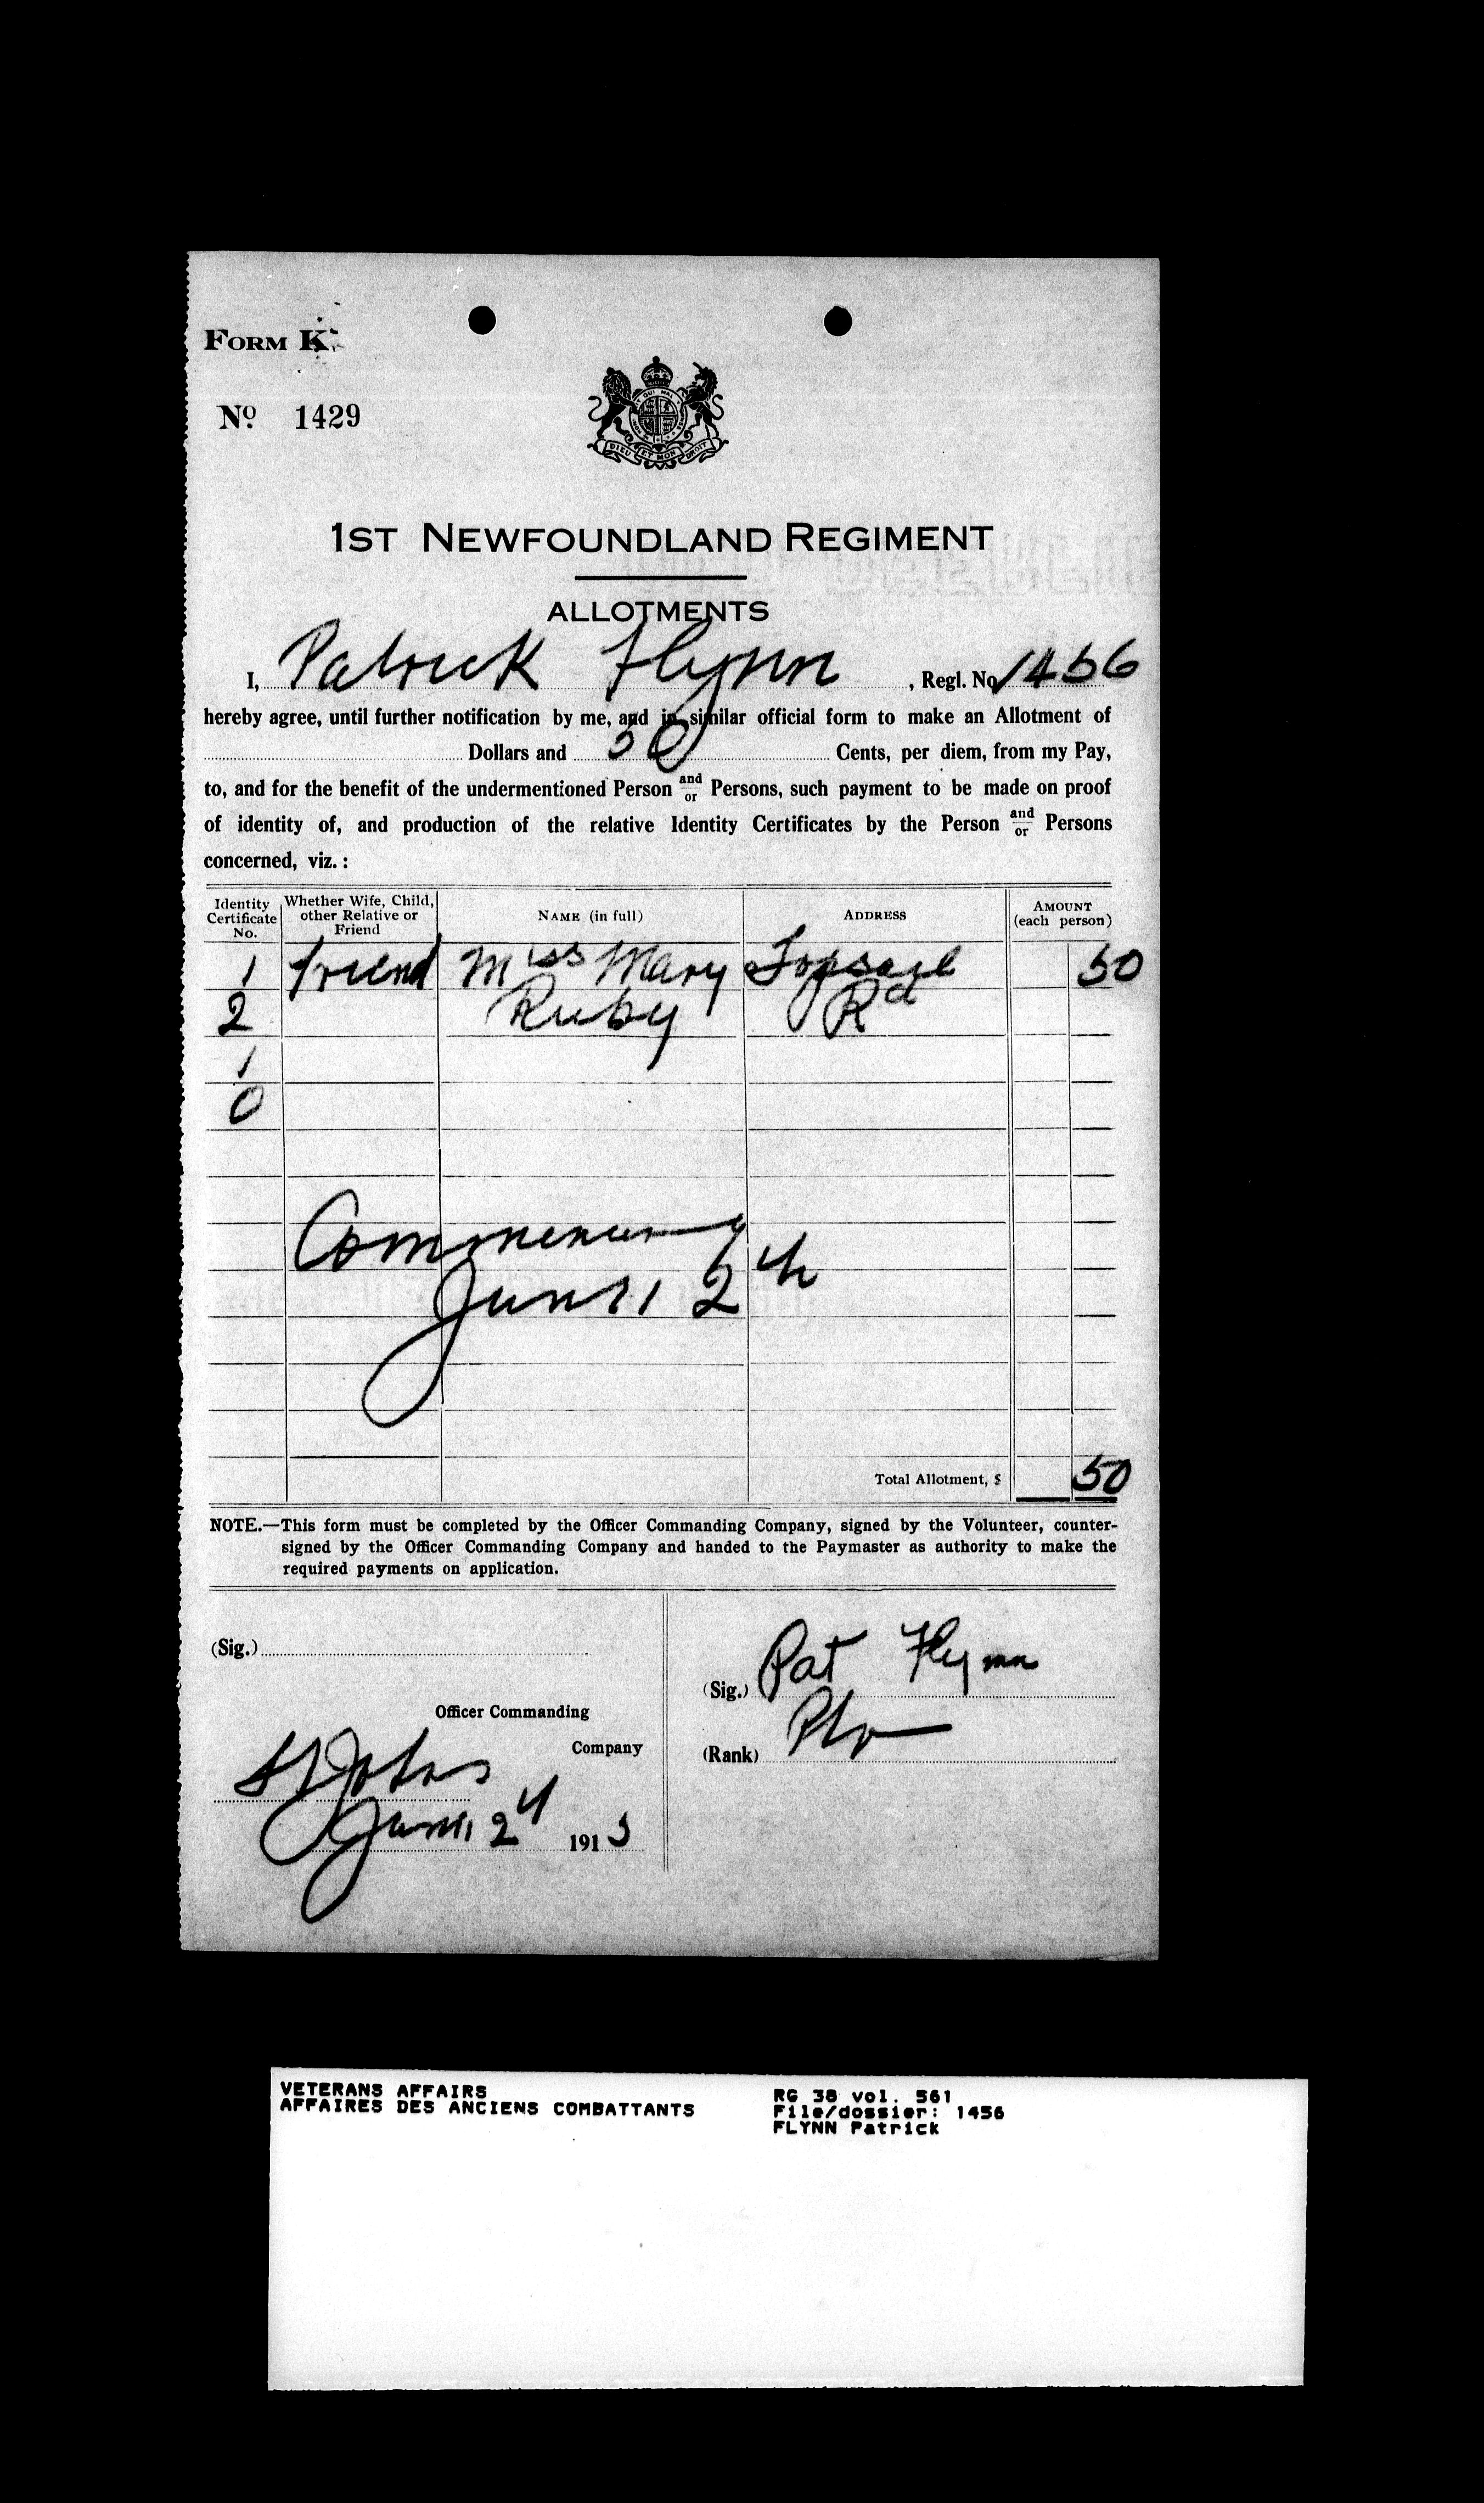 FORM K
No. 1429
DIEU ET MON DROIT
1ST NEWFOUNDLAND REGIMENT
ALLOTMENTS
I, Patrick Flynn, Regl. No. 1456
hereby agree, until further notification by me, and in similar official form to make an Allotment of
Dollars and 50 Cents, per diem, from my Pay,
to, and for the benefit of the undermentioned Person and/or Persons, such payment to be made on proof
of identity of, and production of the relative Identity Certificates by the Person and/or Persons
concerned, viz. :
Identity Certificate No. Whether Wife, Child, other Relative or Friend NAME (in full) ADDRESS AMOUNT (each person)
1 friend Miss Mary Topsail 50
2 Ruby Rd
1
0
Commencing
June 2
Total Allotment, $ 50
NOTE.—This form must be completed by the Officer Commanding Company, signed by the Volunteer, counter-
signed by the Officer Commanding Company and handed to the Paymaster as authority to make the
required payments on application.
(Sig.)
Officer Commanding
Company
St Johns
June 2 1915
(Sig.) Pat Flynn
(Rank) Pte
VETERANS AFFAIRS
AFFAIRES DES ANCIENS COMBATTANTS
RG 38 vol. 561
File/dossier: 1456
FLYNN Patrick